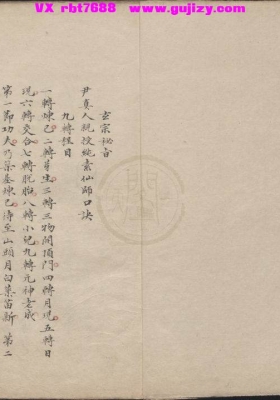 vx rbt7688 https://www.gujizy.com
玄宗秘旨
尹真人親授純素仙師口訣
九轉程目
一轉煉己二轉產生三轉三物開頂門四轉月現五轉日
現六轉交合七轉脫胎八轉小兒九轉元神老成
第一節功夫乃築基煉己待至山頭月白藥苗新 第二